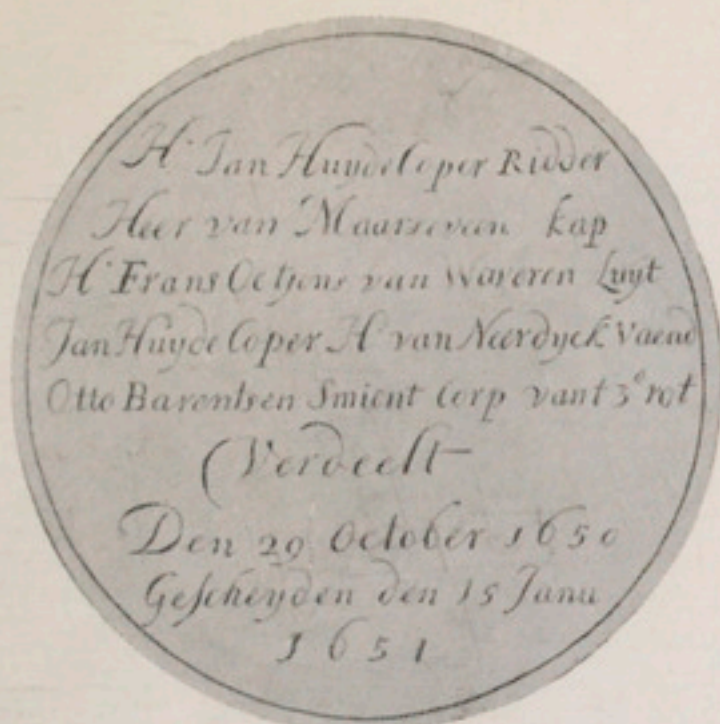 H. Jan HuydeCoper Ridder
Heer van Maarseveen kap
H. Frans Oetjens van Waveren Luyt
Jan HuydeCoper H. van Neerdyck Vaend
Otto Barentsen Smient Corp vant 3e rot
Verdeelt
Den 29 October 1650
Gescheyden den 15 Janu
1651